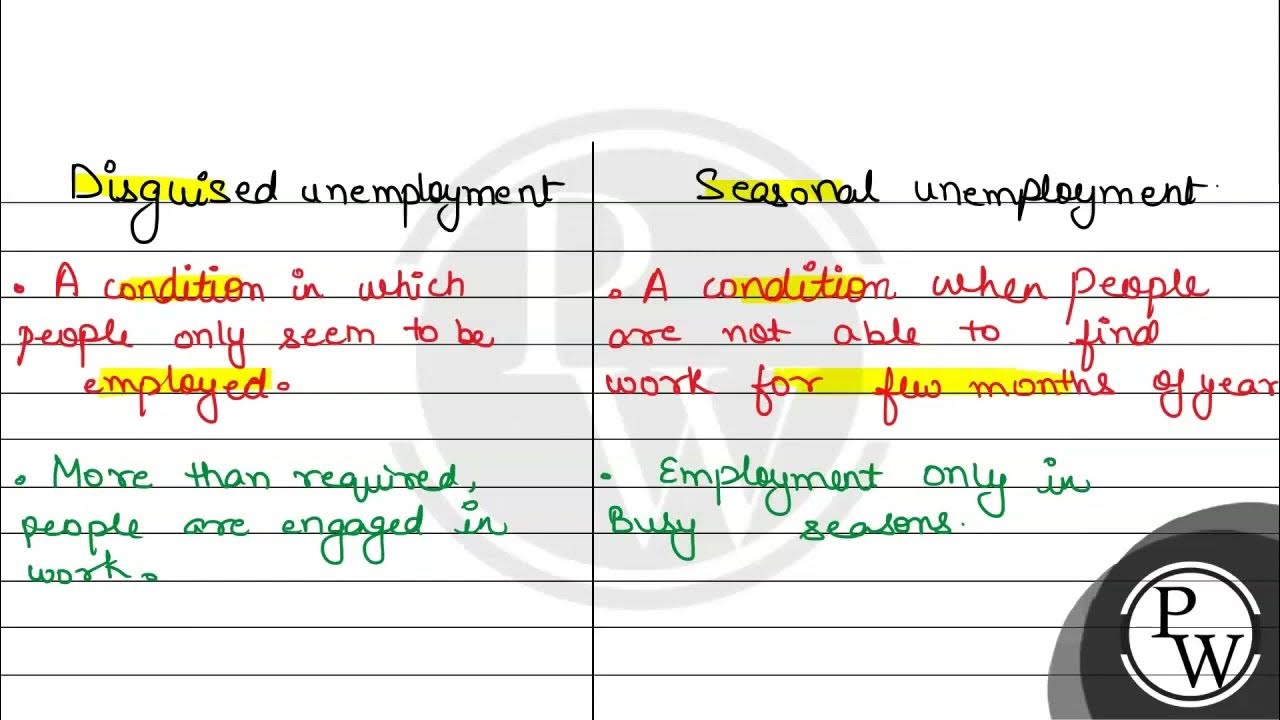 Disguised unemployment
• A condition in which
people only seem to be
employed.
• More than required,
people are engaged in
work.
Seasonal unemployment.
• A condition when people
are not able to find
work for few months of year
• Employment only in
Busy seasons.
PW
PW